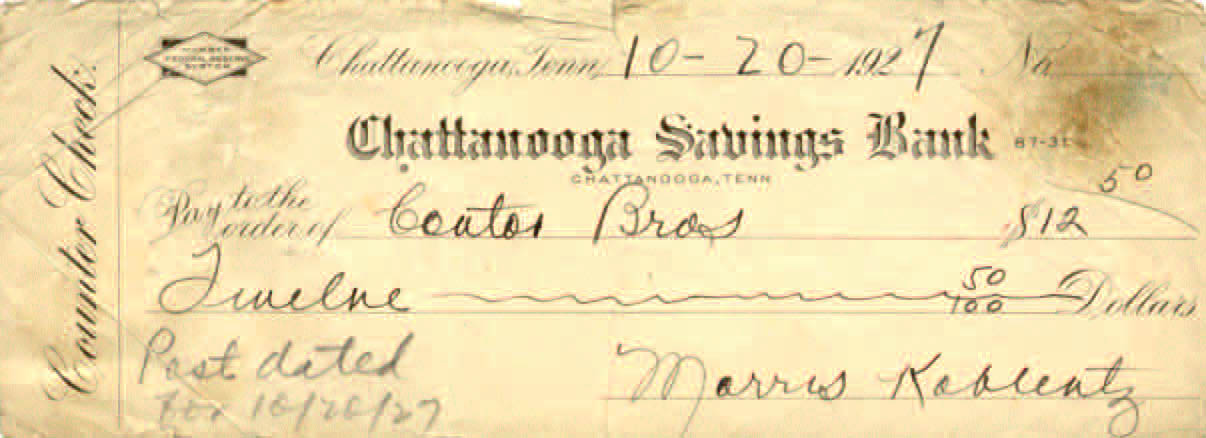 Counter Check.
MEMBER
FEDERAL RESERVE
SYSTEM
Chattanooga, Tenn, 10-20-1927 No.
Chattanooga Savings Bank 87-31
CHATTANOOGA, TENN
Pay to the order of Contos Bros $12 50
Twelve 50/100 Dollars
Post dated
for 10/20/27
Morris Koblentz